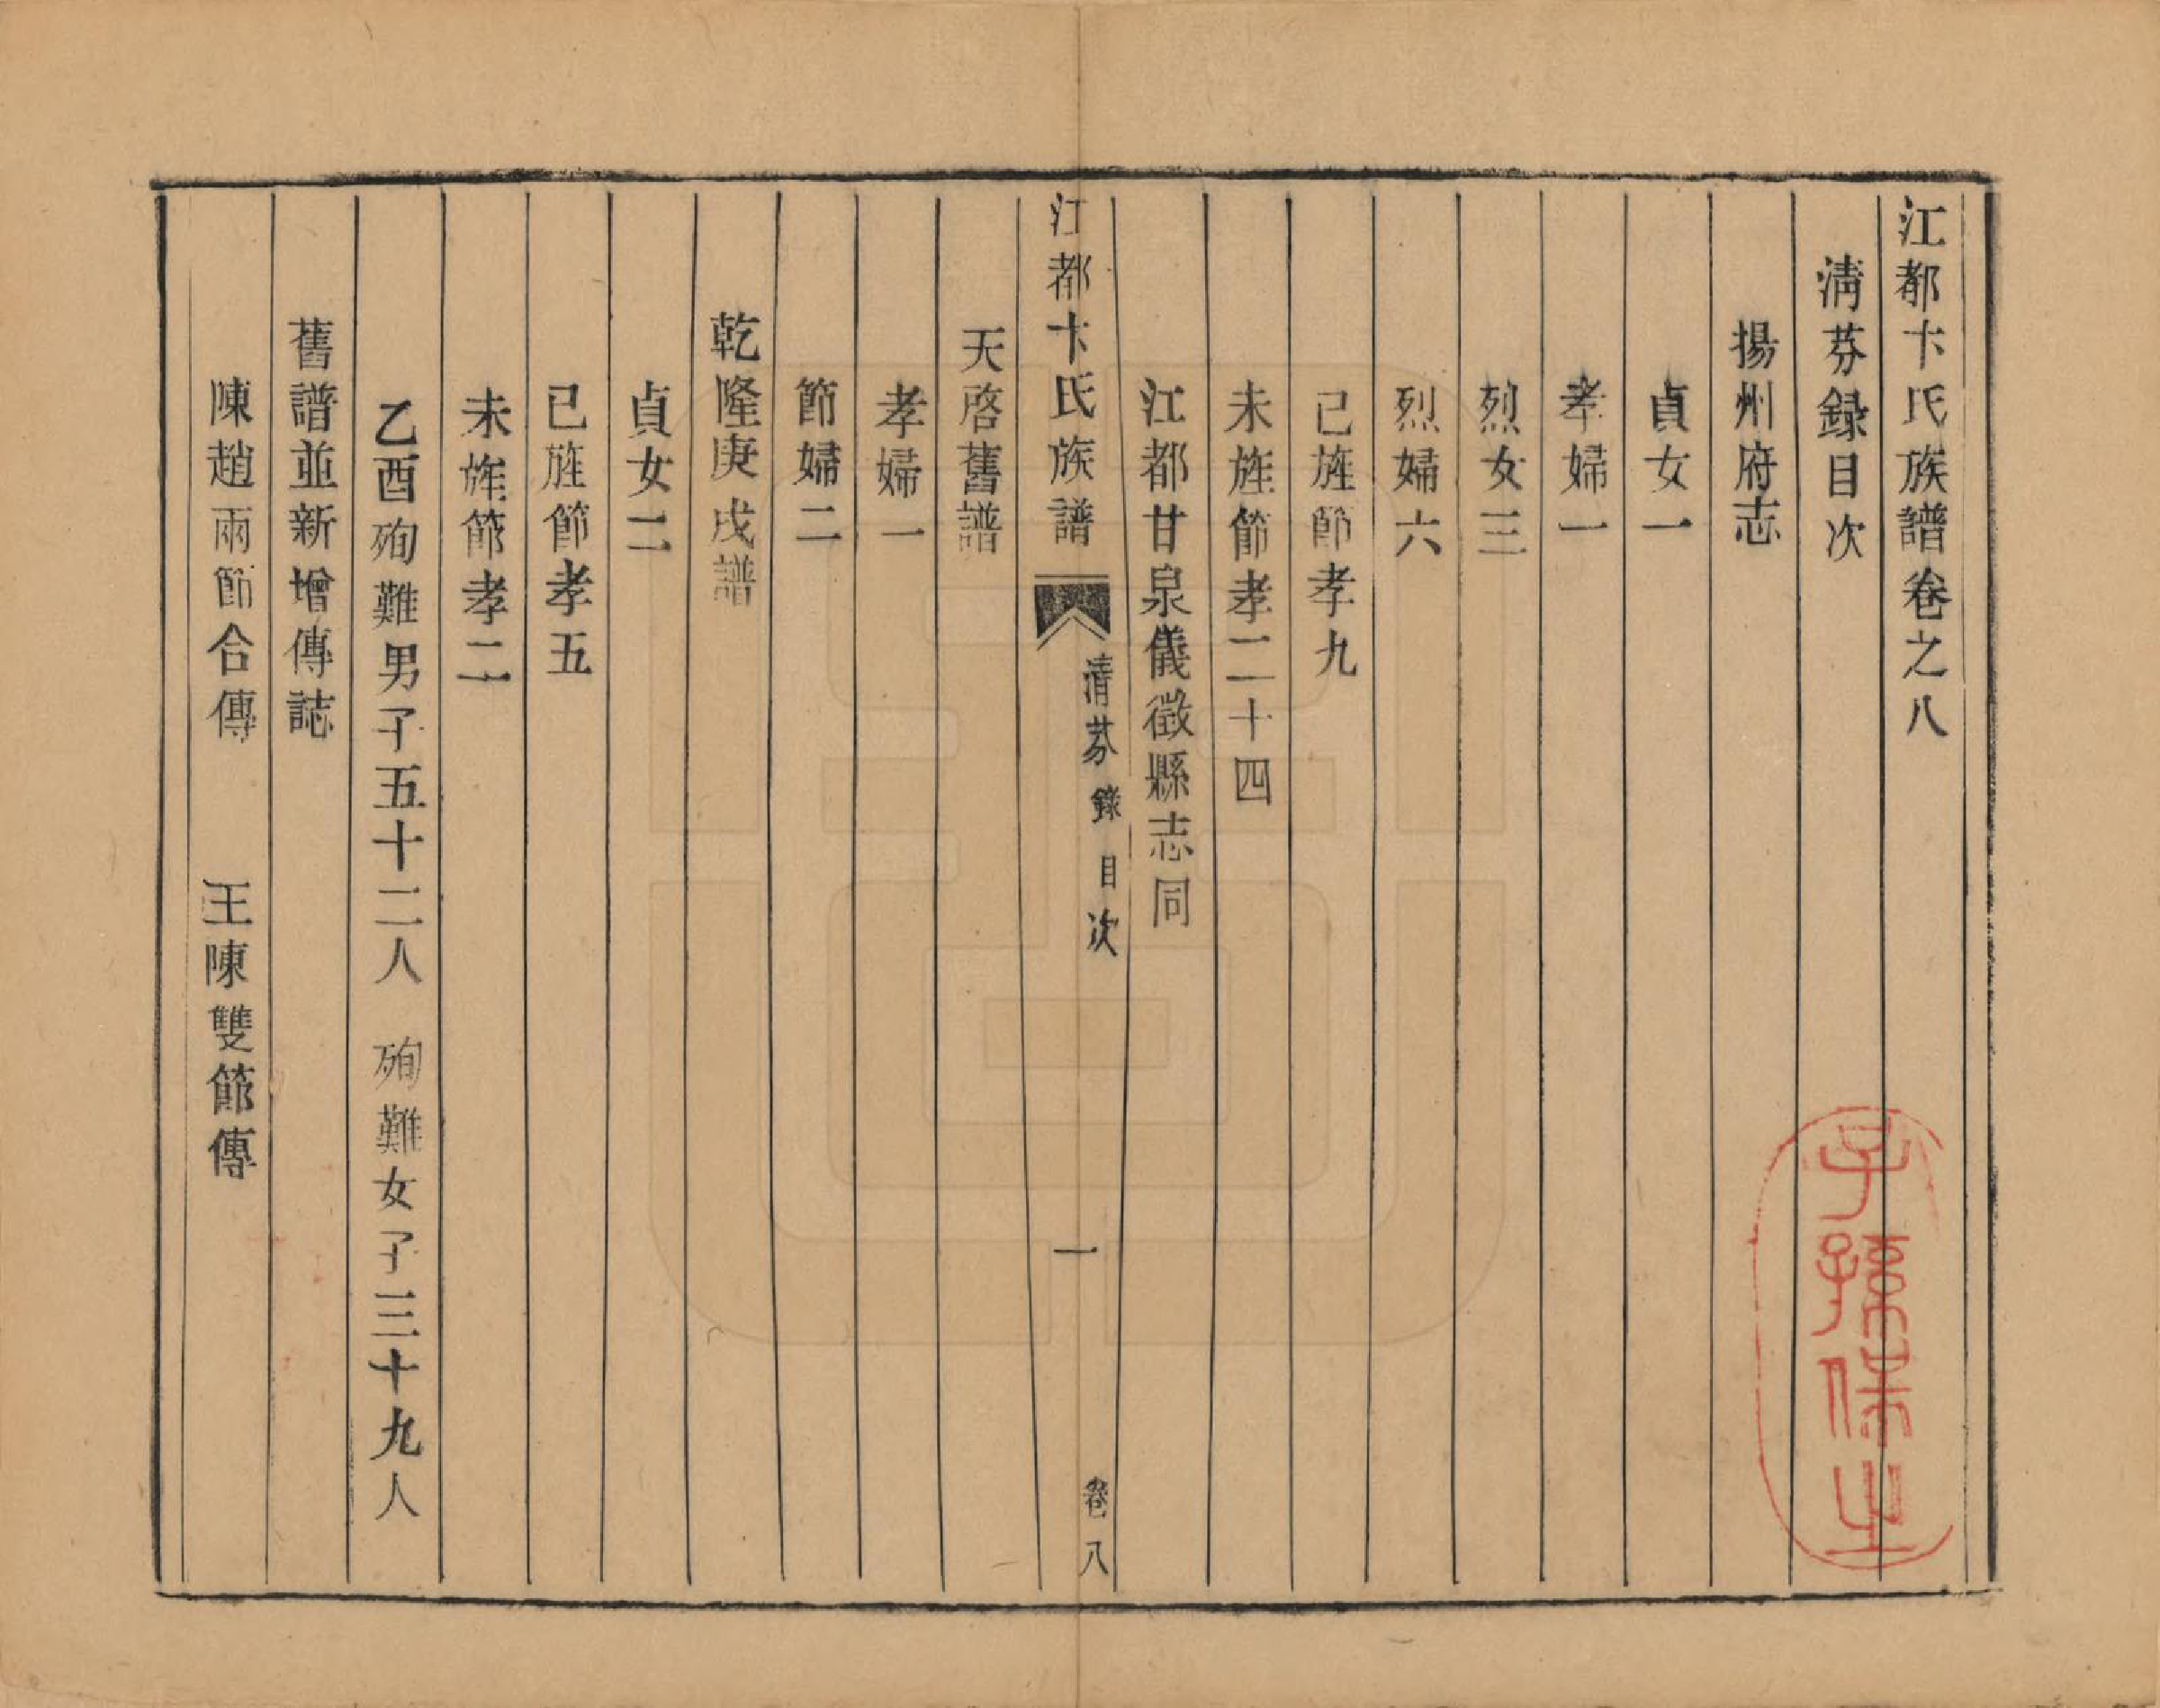 江都卞氏族譜卷之八
淸芬録目次
揚州府志
貞女一
孝婦一
烈女三
烈婦六
已旌節孝九
未旌節孝二十四
江都甘泉儀徵縣志同
江都卞氏族譜
清芬錄目次
一
卷八
天啓舊譜
孝婦一
節婦二
乾隆庚戌譜
貞女二
已旌節孝五
未旌節孝二
乙酉殉難男子五十二人 殉難女子三十九人
舊譜並新增傳誌
陳趙兩節合傳 王陳雙節傳
子孫保之